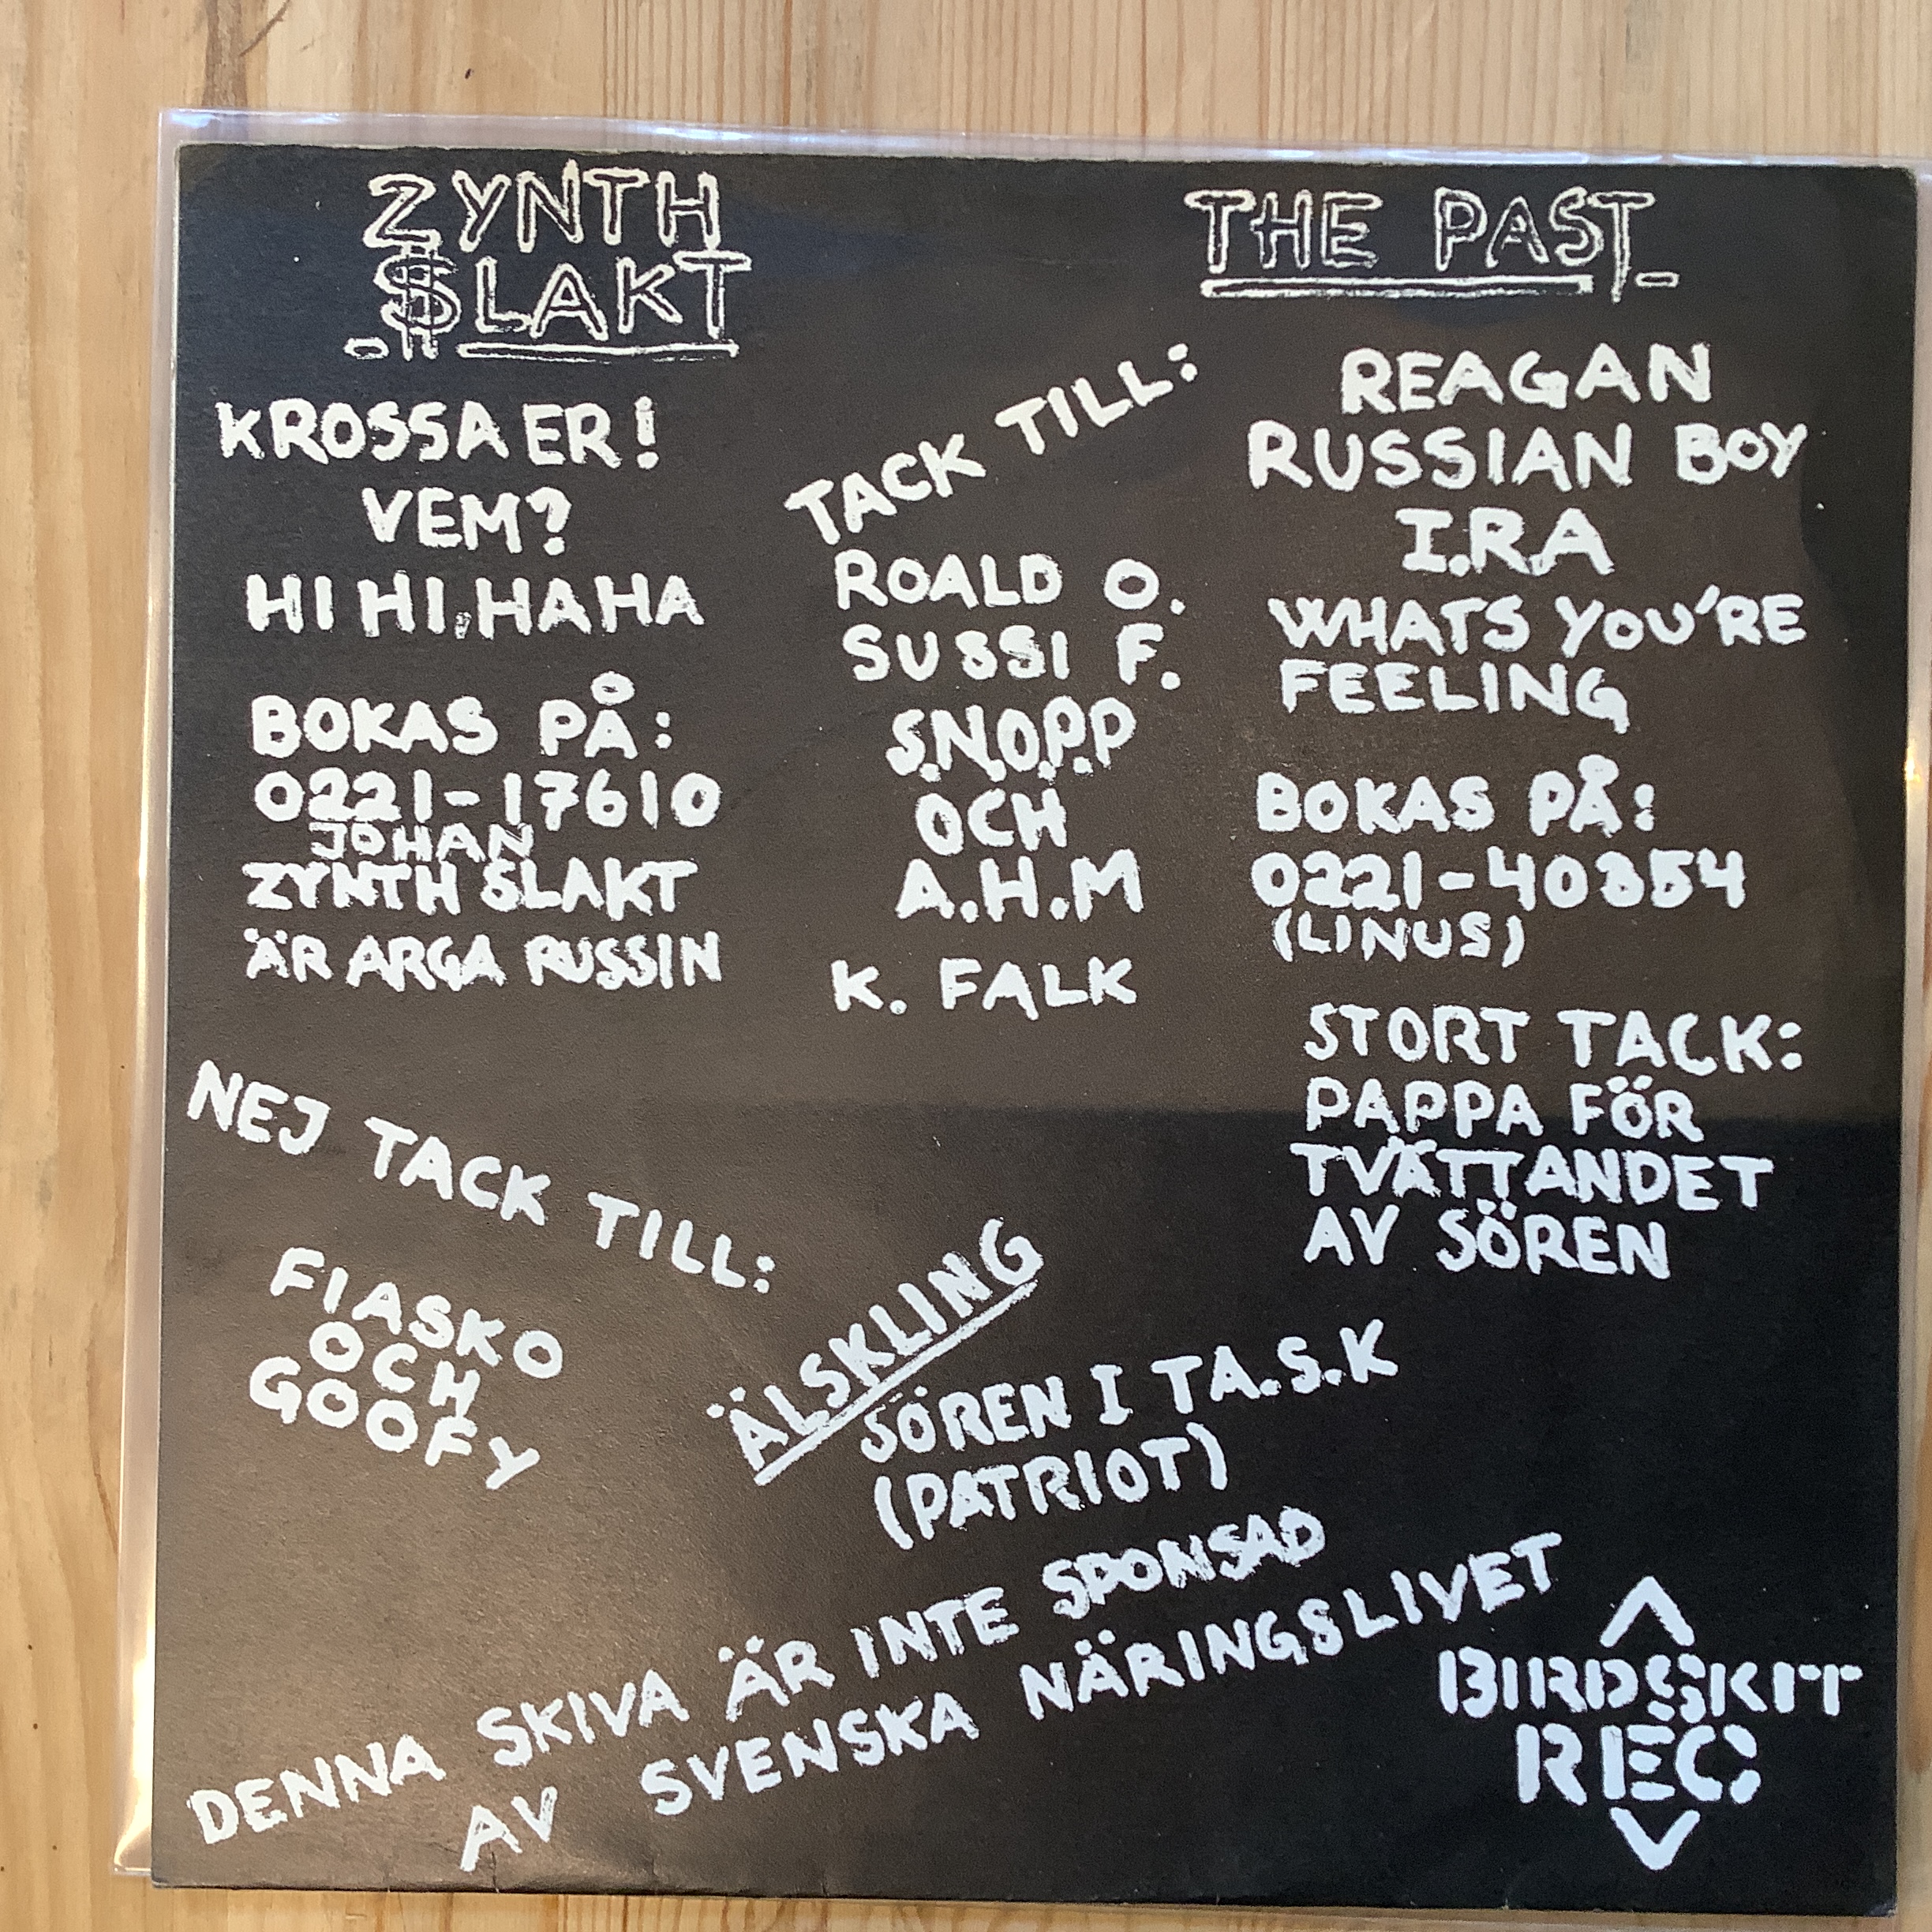 ZYNTH
$LAKT
KROSSA ER!
VEM?
HI HI, HA HA
BOKAS PÅ:
0221-17610
JOHAN
ZYNTH SLAKT
ÄR ARGA RUSSIN
TACK TILL:
ROALD O.
SUSSI F.
S.N.O.P.P
OCH
A.H.M
K. FALK
THE PAST
REAGAN
RUSSIAN BOY
I.R.A
WHATS YOU'RE
FEELING
BOKAS PÅ:
0221-40354
(LINUS)
STORT TACK:
PAPPA FÖR
TVÄTTANDET
AV SÖREN
NEJ TACK TILL:
FIASKO
OCH
GOOFY
ÄLSKLING
SÖREN I TA.S.K
(PATRIOT)
DENNA SKIVA ÄR INTE SPONSAD
AV SVENSKA NÄRINGSLIVET
BIRDSKIT
REC